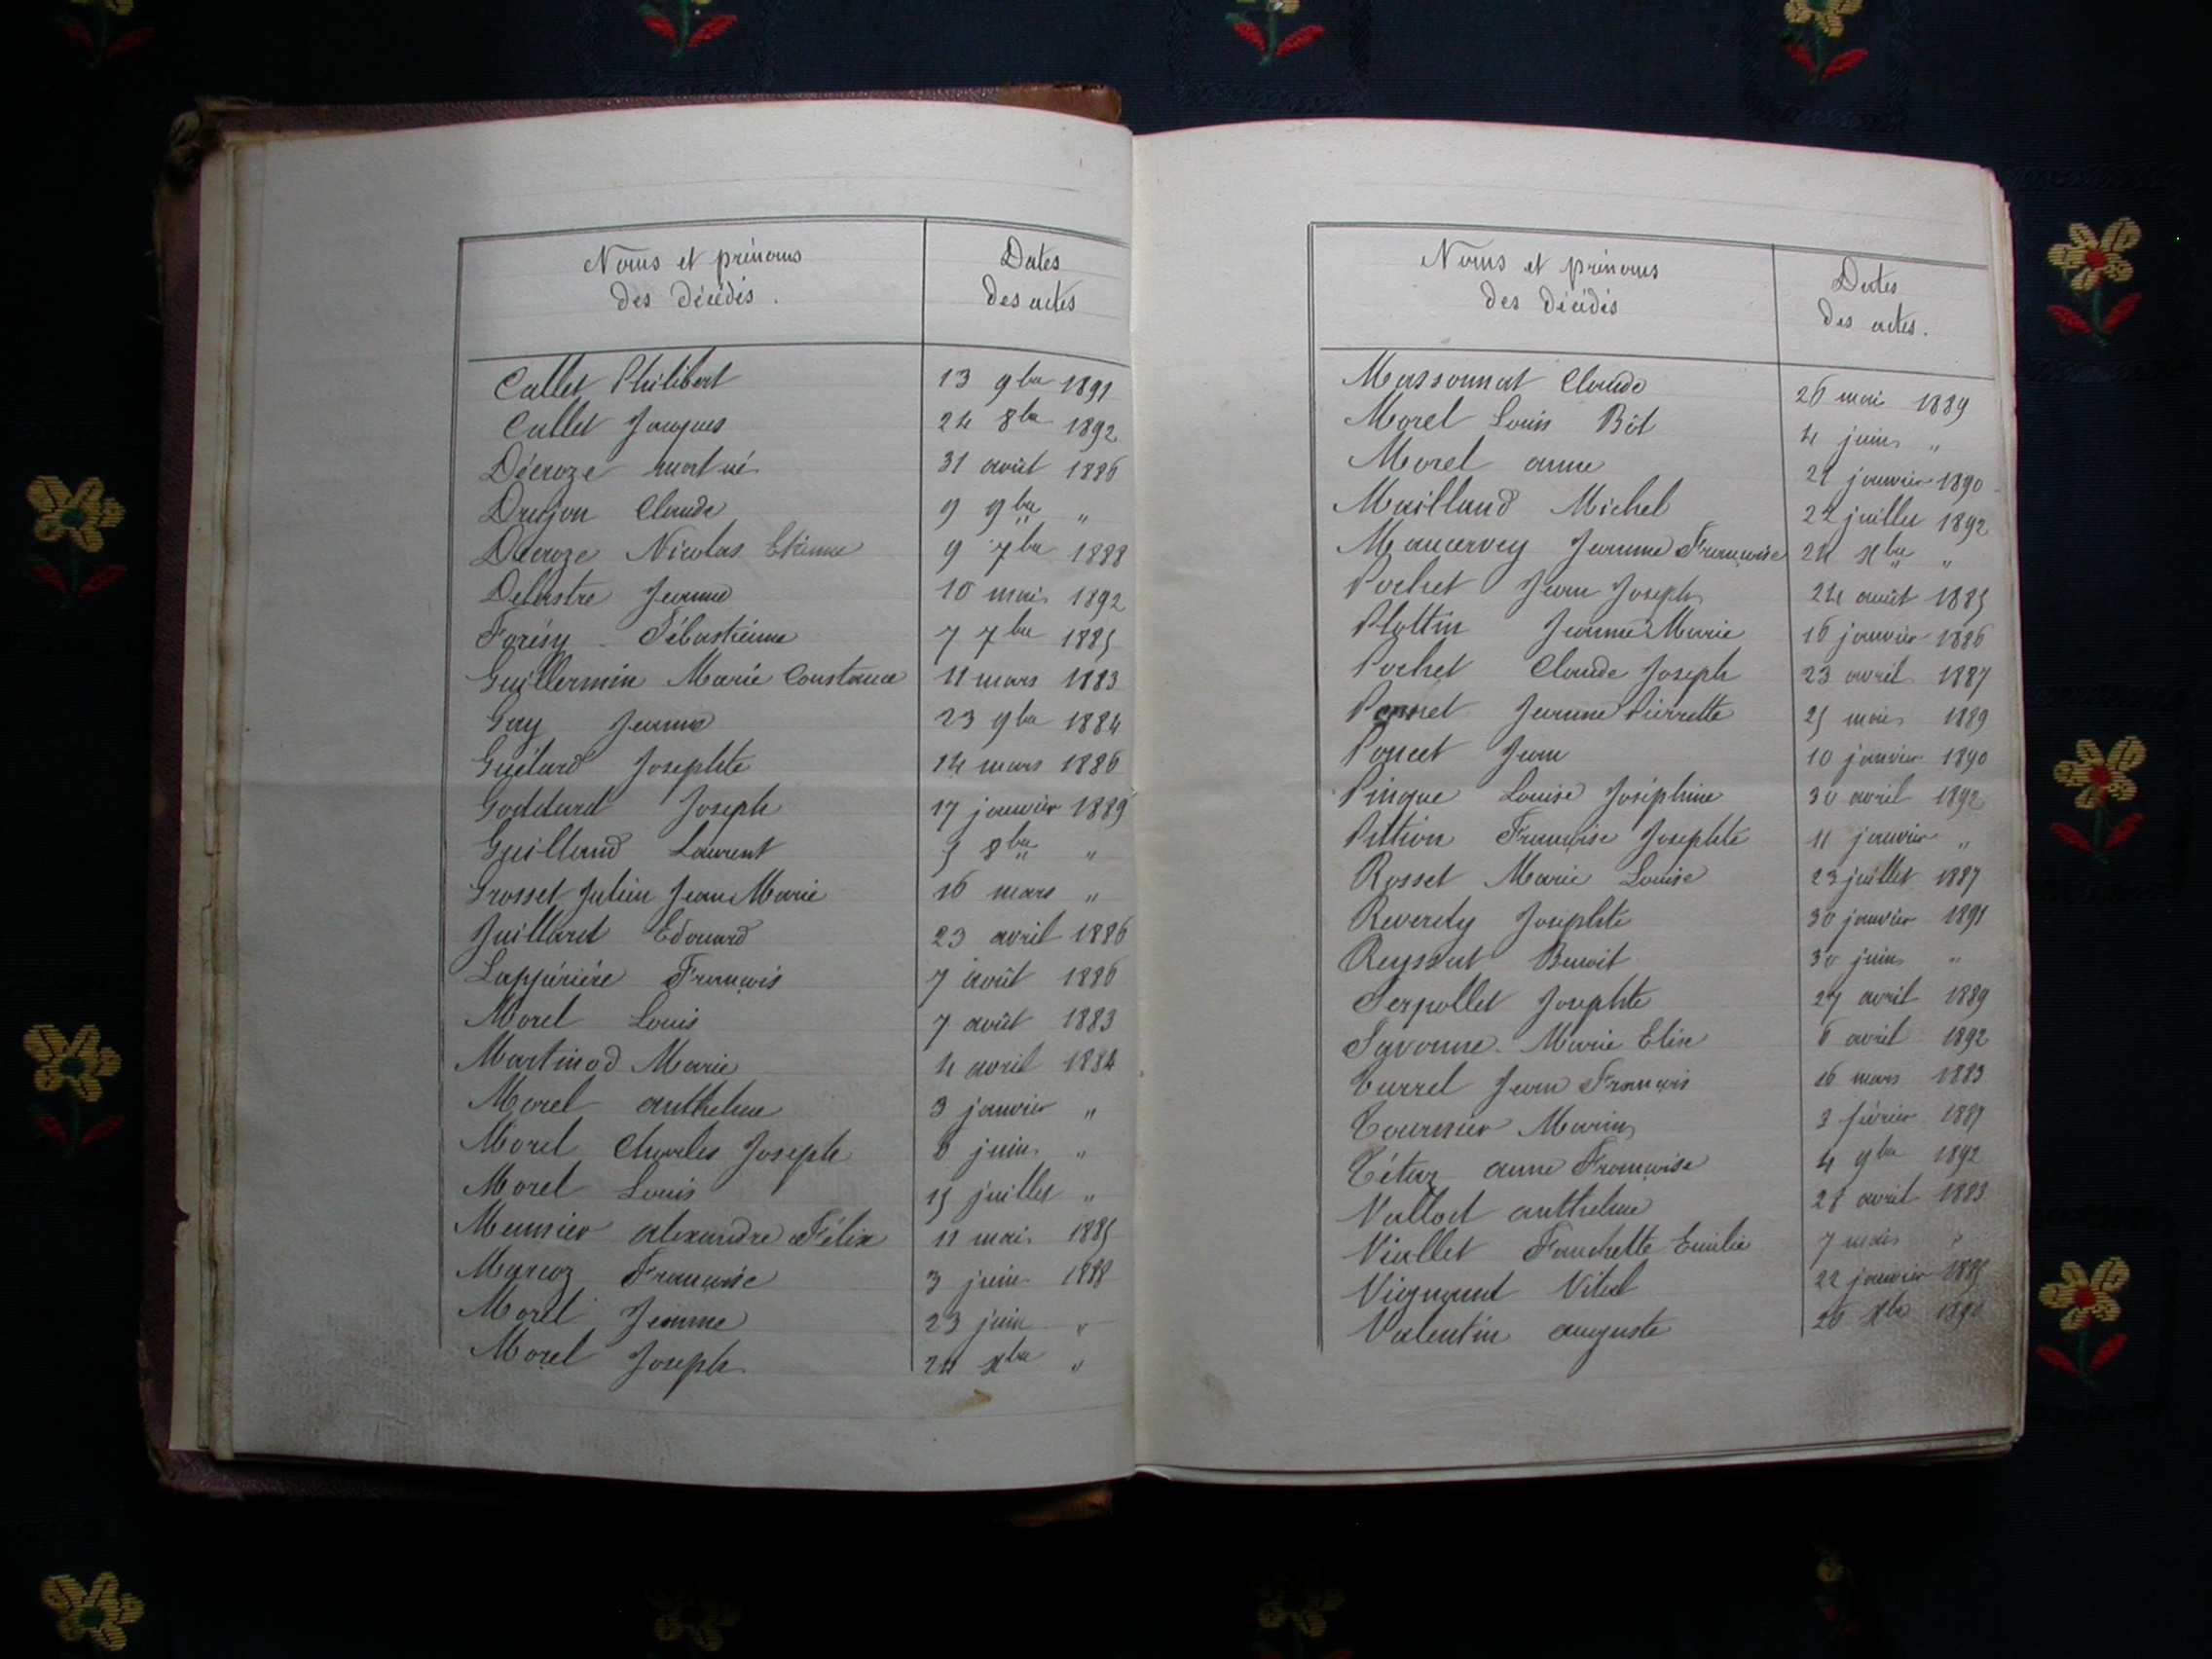 Noms et prénoms Dates
des décédés. des actes
Callet Philibert 13 9bre 1891
Callet Jacques 24 8bre 1892
Décroze mort né 31 août 1886
Drujon Claude 9 9bre "
Décroze Nicolas Etienne 9 7bre 1888
Delastre Jeanne 10 mai 1892
Forésy Sébastienne 7 7bre 1885
Guillermin Marie Constance 11 mars 1883
Guy Jeanne 23 9bre 1884
Guélard Josephte 14 mars 1886
Goddard Joseph 17 janvier 1889
Guilland Laurent 5 8bre "
Grosset Julien Jean Marie 16 mars "
Juillard Edouard 23 avril 1886
Lappérière François 7 août 1886
Morel Louis 7 août 1883
Martinod Marie 4 avril 1884
Morel anthelme 3 janvier "
Morel Charles Joseph 8 juin "
Morel Louis 15 juillet "
Meunier alexandre Félix 11 mai 1885
Marcoz Françoise 3 juin 1888
Morel Jeanne 23 juin "
Morel Joseph 24 xbre "
Noms et prénoms Dates
des décédés des actes.
Massonnat Claude 26 mai 1889
Morel Louis Bôt 4 juin "
Morel anne 21 janvier 1890
Mailland Michel 22 juillet 1892
Maucervey Jeanne Françoise 24 xbre "
Pochet Jean Joseph 24 août 1885
Plottin Jeanne Marie 16 janvier 1886
Pochet Claude Joseph 23 avril 1887
Jeanne Pierrette 25 mai 1889
Poncet Jean 10 janvier 1890
Pingue Louise Joséphine 30 avril 1892
Pittion Françoise Josephte 11 janvier "
Rosset Marie Louise 23 juillet 1887
Reverdy Josephte 30 janvier 1891
Reyssat Benoit 30 juin "
Serpollet Josephte 27 avril 1889
Savonne Marie Elise 6 avril 1892
Turrel Jean François 16 mars 1883
Tournier Marin 3 février 1887
Tétaz anne Françoise 4 9bre 1892
Vallod anthelme 28 avril 1883
Viallet Fanchette Emilie 7 mai "
Vignand Vital 22 janvier 1885
Valentin auguste 26 xbre 1890